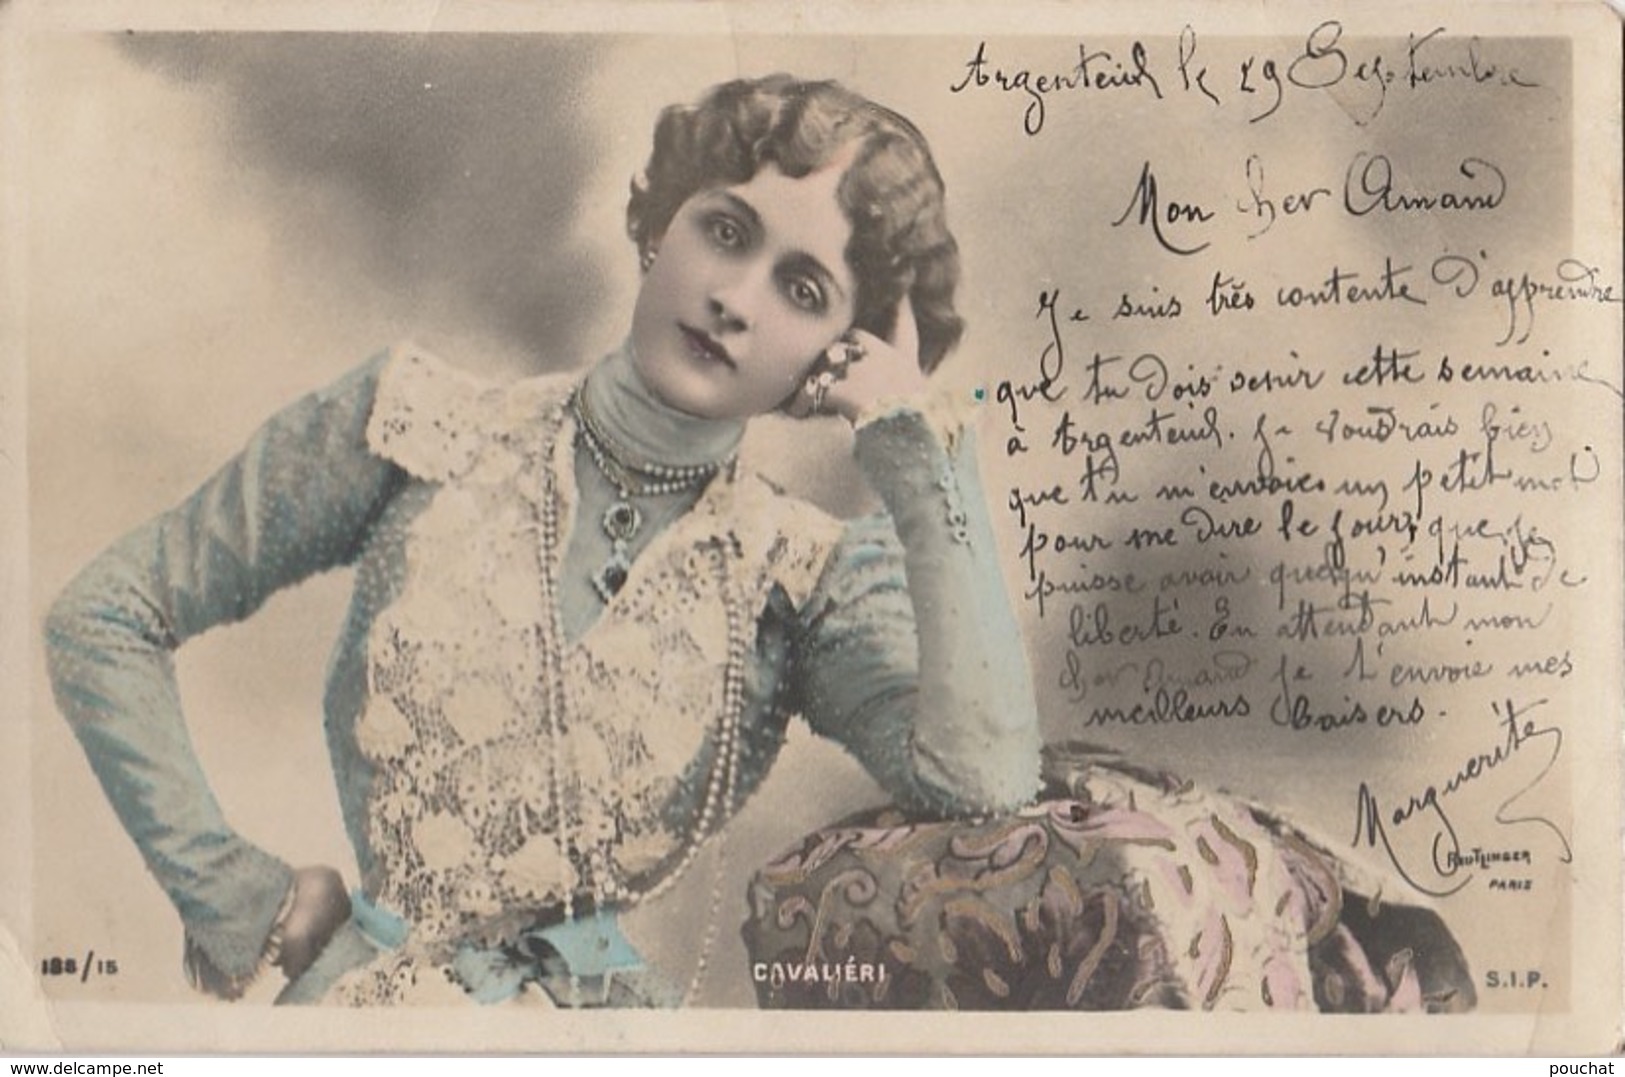 Argenteuil le 29 Septembre
Mon cher Amand
Je suis très contente d'apprendre
que tu dois venir cette semaine
à Argenteuil. Je voudrais bien
que tu m'envoies un petit mot
pour me dire le jour, que je
puisse avoir quelqu'instant de
liberté. En attendant mon
cher Amand je t'envoie mes
meilleurs baisers.
Marguerite
REUTLINGER
PARIS
188/15
CAVALIÉRI
S.I.P.
www.delcampe.net
pouchat